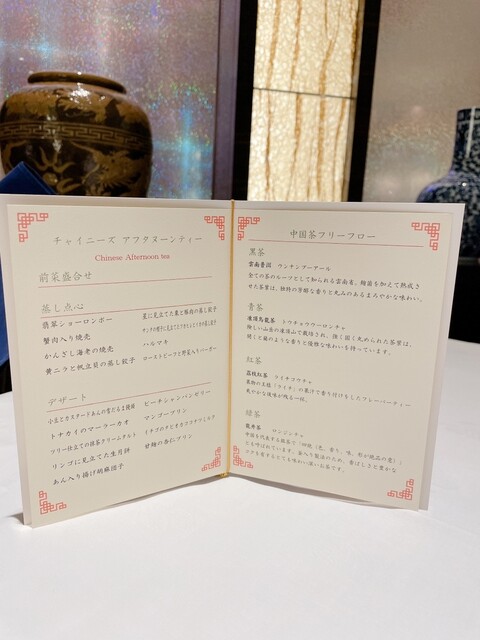 チャイニーズ アフタヌーンティー
Chinese Afternoon tea
前菜盛合せ
蒸し点心
翡翠ショーロンポー
蟹肉入り焼売
かんざし海老の焼売
黄ニラと帆立貝の蒸し餃子
星に見立てた棗と豚肉の蒸し餃子
ハルマキ
ローストビーフと野菜入りバーガー
デザート
小豆とカスタードあんの雪だるま饅頭
トナカイのマーラーカオ
ツリー仕立ての抹茶クリームタルト
リンゴに見立てた生月餅
あん入り揚げ胡麻団子
ピーチシャンパンゼリー
マンゴープリン
甘麹の杏仁プリン
中国茶フリーフロー
黒茶
雲南普洱 ウンナンプーアール
全ての茶のルーツとして知られる雲南省。麹菌を加えて熟成さ
せた茶葉は、独特の芳醇な香りと丸みのあるまろやかな味わい。
青茶
凍頂烏龍茶 トウチョウウーロンチャ
険しい山岳の凍頂山で栽培され、強く固く丸められた茶葉は、
開くと蘭のような香りと優雅な味わいを持っています。
紅茶
茘枝紅茶 ライチコウチャ
果物の王様「ライチ」の果汁で香り付けをしたフレーバーティー
爽やかな後味が残る一杯。
緑茶
龍井茶 ロンジンチャ
中国を代表する緑茶で「四絶（色、香り、味、形が絶品の意）」
とも呼ばれています。釜入り製法のため、香ばしさと豊かな
コクを有するとても味わい深いお茶です。